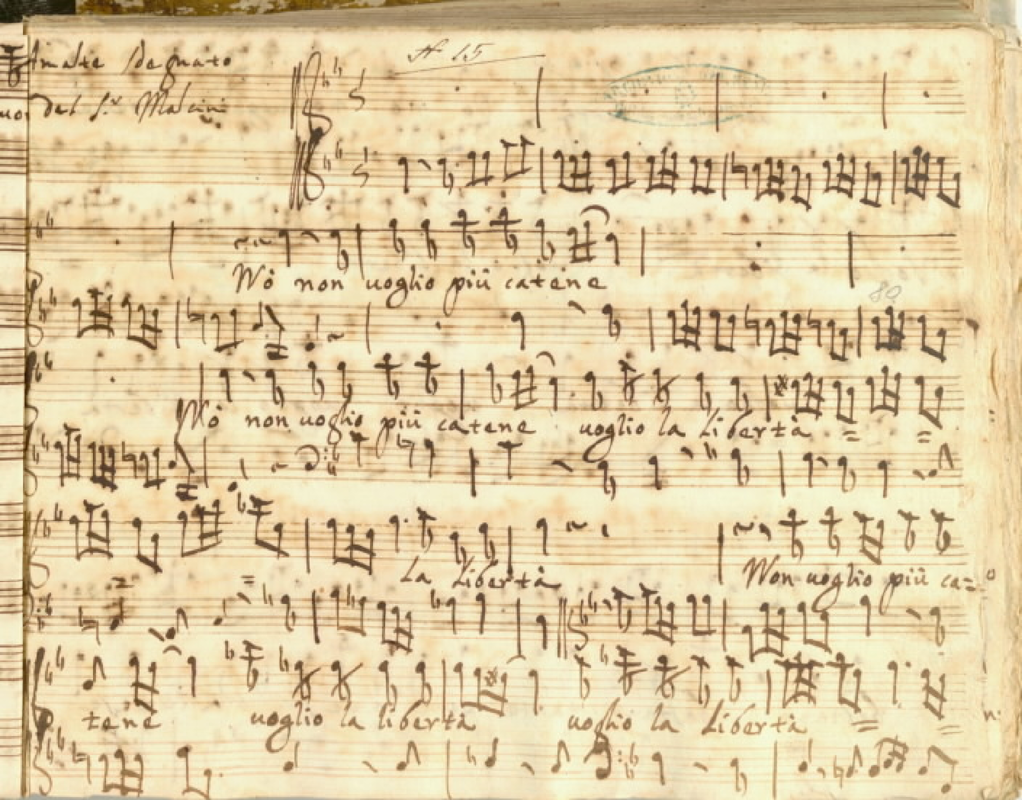 Amate Sdegnato
A 15
del S.r Mancini
Nò non uoglio più catene
80
Nò non uoglio più catene uoglio la libertà = =
= = La Libertà Non uoglio più ca=
tene uoglio la libertà uoglio la Libertà = =